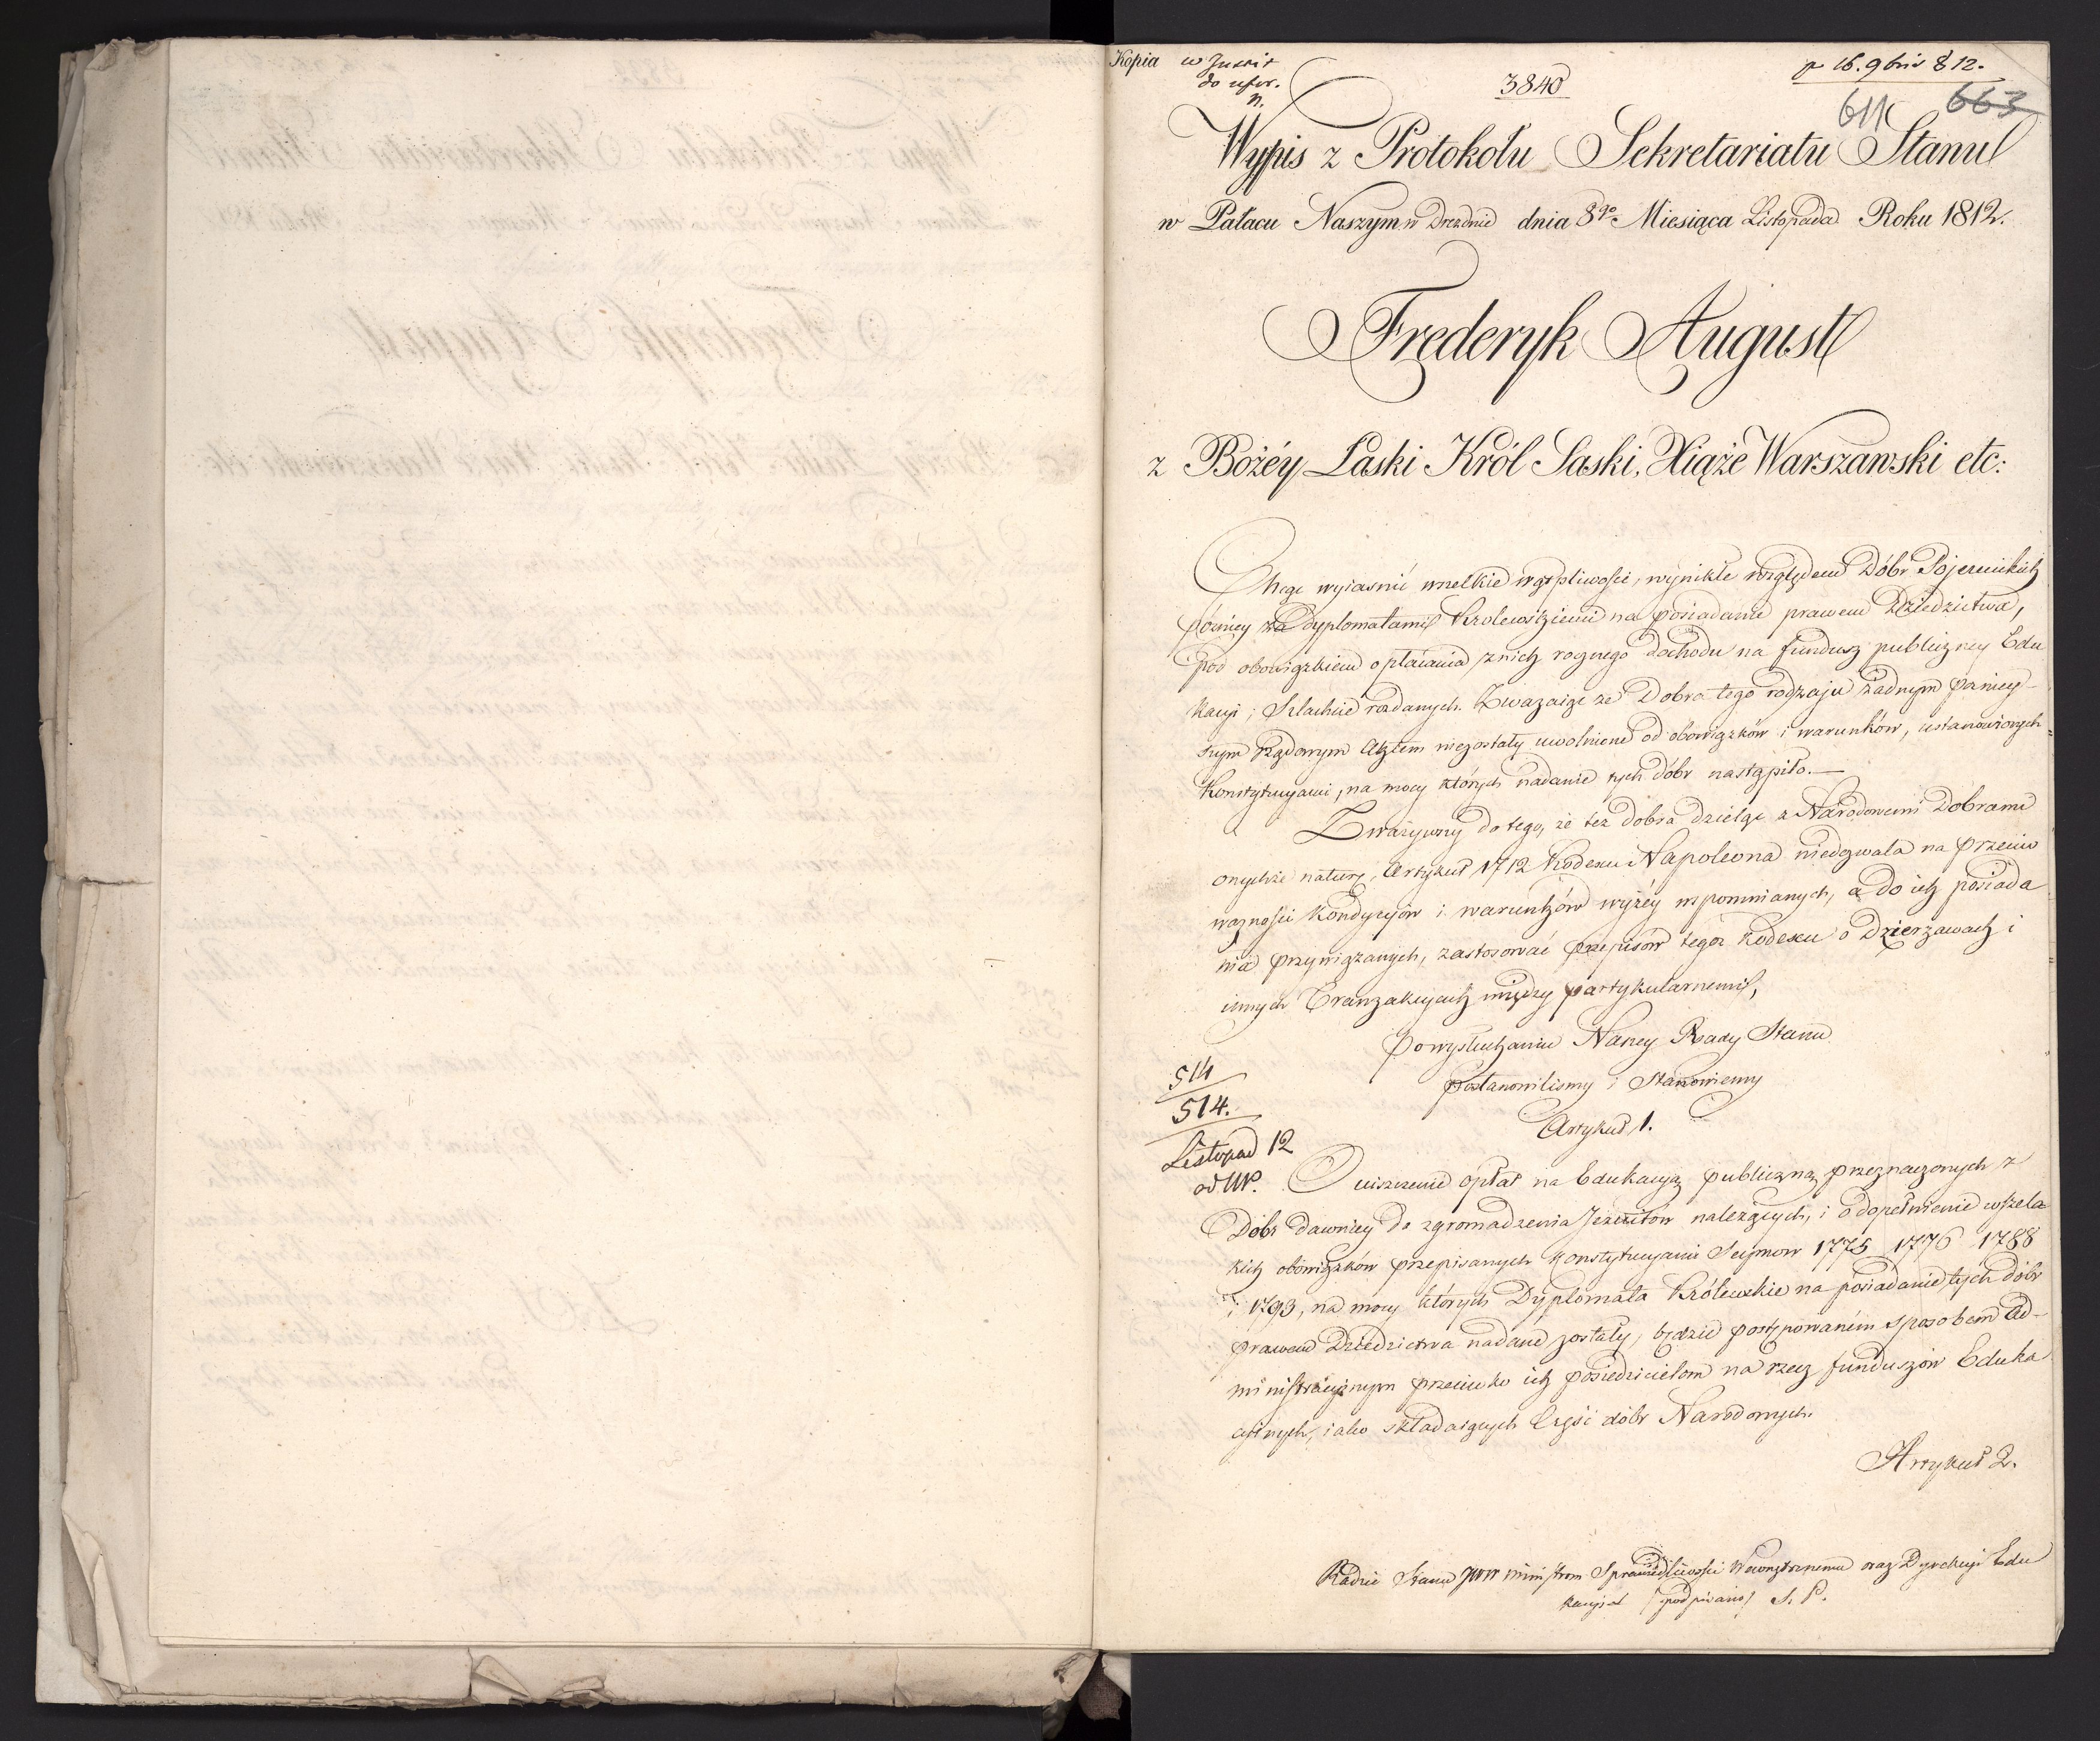 Kopia
3840
16. 9bris 812.
611 663
Wypis z Protokołu Sekretariatu Stanu
w Pałacu Naszym w Dreznie dnia 8go Miesiąca Listopada Roku 1812.
Frederyk August
z Bożéy Łaski Król Saski, Xiąże Warszawski etc:
Chcąc wyiasnić wszelkie wątpliwości, wynikłe względem Dóbr Pojezuickich
poźniey za dyplomatami Krolewskiemi na posiadanie prawem Dziedzictwa,
pod obowiązkiem opłacania z nich rocznego dochodu na fundusz publiczney Edu
kacyi; Szlachcie rozdanych. Zważaiąc że Dobra tego rodzaju żadnym pózniey-
szym Rządowym Aktem niezostały uwolnione od obowiązków i warunków, ustanowionych
Konstytucyami, na mocy których nadanie tych dóbr nastąpiło.—
Zważywszy do tego, że też dobra dzieląc z Narodowemi Dobrami
onychże naturę, Artykuł 1712 Kodexu Napoleona niedozwala na przeciw
ważności Kondycyów i warunków wyżéy wspomnianych, a do ich posiada
nia przywiązanych, zastosować przepisów tegoż Kodexu o Dzierzawach i
innych Tranzakcyach między partykularnemi,
Powysłuchaniu Naszey Rady Stanu
postanowilismy i Stanowiemy
Artykuł 1.
514
514.
Listopad 12
O uiszczenie opłat na Edukacyą publiczną przeznaczonych z
Dóbr dawniey do zgromadzenia Jezuitów należących, i o dopełnienie wszela
kich obowiązków przepisanych Konstytucyami Seymow 1775 1776 1788
i 1793, na mocy których Dyplomata Królewskie na posiadanie tych dóbr
prawem Dziedzictwa nadane zostały, będzie postępowaném sposobem Ad-
ministracyinym przeciwko ich posiedzicielom na rzecz funduszów Eduka
cyinych, iako składaiących Część dóbr Narodowych.
Artykuł 2.
Radzie Stanu JWW ministrom Sprawiedliwości Wewnętrznemu oraz Dyrekcyi Edu
kacyi /podpisano/ S. P.